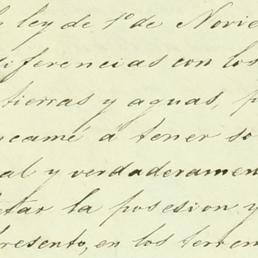 ley de 1º de Novie
diferencias con los
tierras y aguas, p
ncamé a tener so
al y verdaderamen
tar la posesion y
presento, en los terren